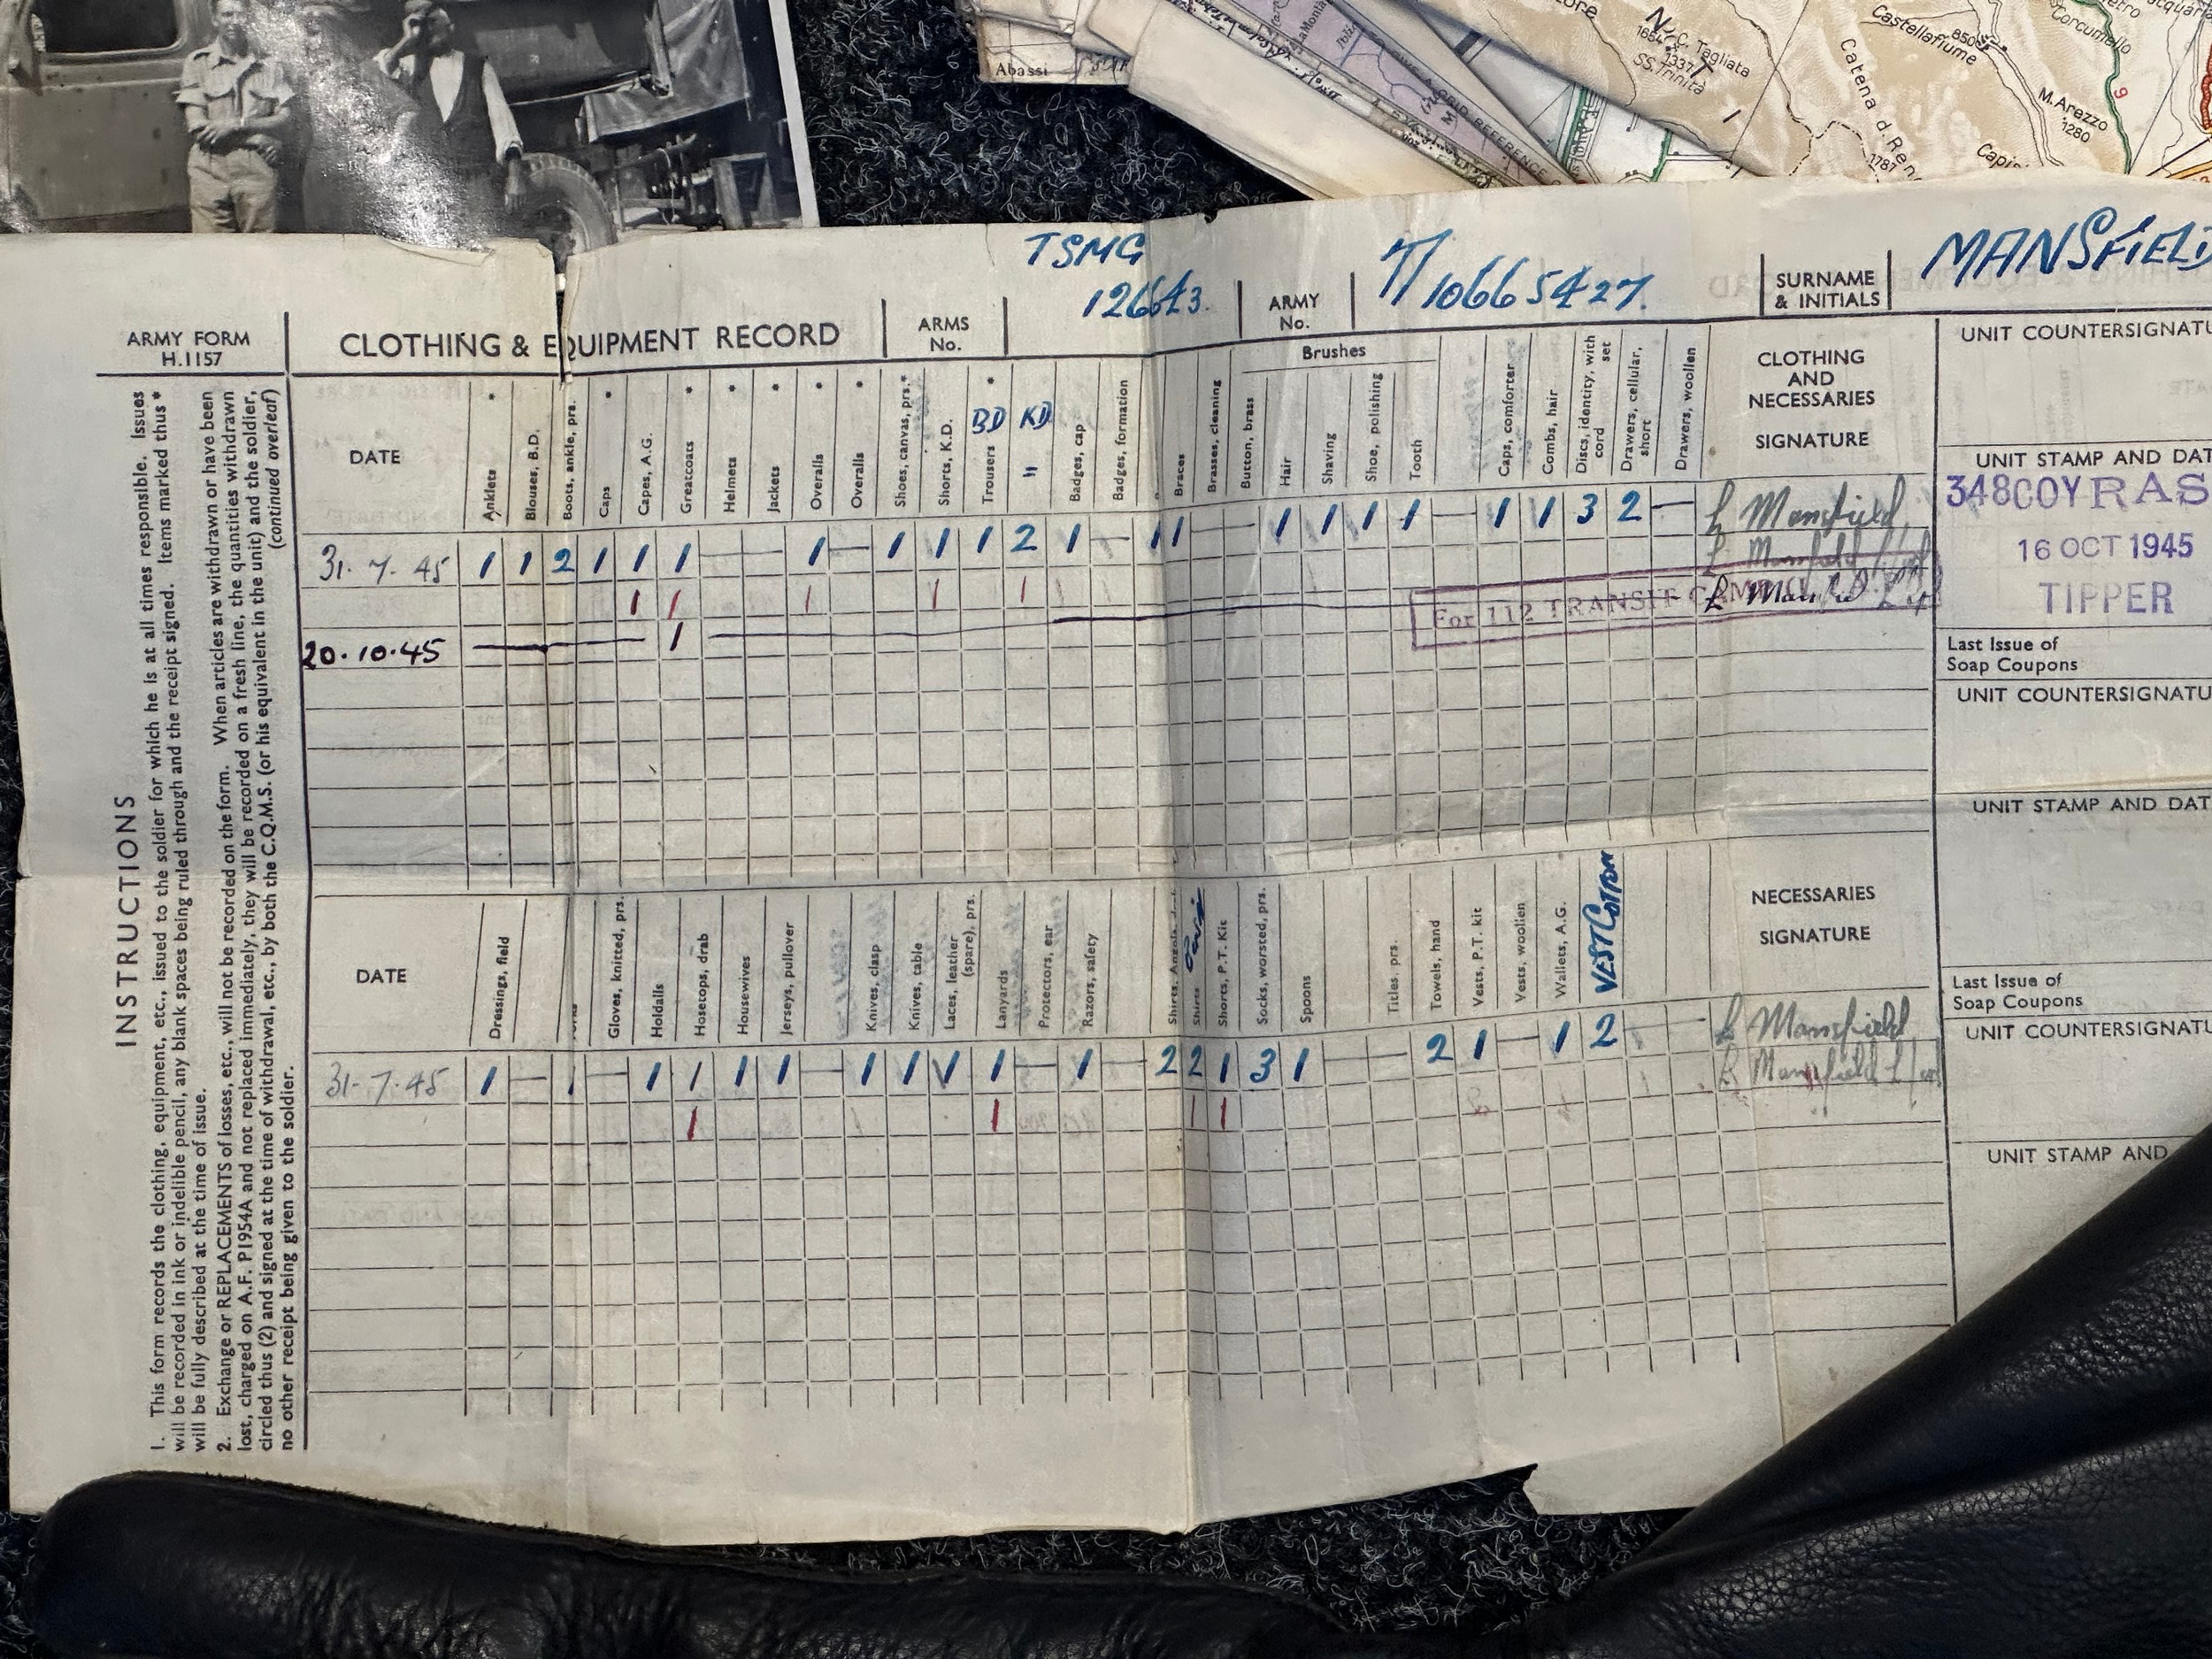 Abassi
GRID REFERENCE
N
C. Tagliata
1337
SS. Trinità
Castellafiume
850
Corcumello
Catena d. Ren
1787
M. Arezzo
1280
9
TSMG
126643.
T/10665427.
MANSFIELD
ARMY FORM
H.1157
CLOTHING & EQUIPMENT RECORD
ARMS
No.
ARMY
No.
SURNAME
& INITIALS
INSTRUCTIONS
1. This form records the clothing, equipment, etc., issued to the soldier for which he is at all times responsible. Issues
will be recorded in ink or indelible pencil, any blank spaces being ruled through and the receipt signed. Items marked thus *
will be fully described at the time of issue.
2. Exchange or REPLACEMENTS of losses, etc., will not be recorded on the form. When articles are withdrawn or have been
lost, charged on A.F. P1954A and not replaced immediately, they will be recorded on a fresh line, the quantities withdrawn
circled thus (2) and signed at the time of withdrawal, etc., by both the C.Q.M.S. (or his equivalent in the unit) and the soldier,
no other receipt being given to the soldier.
(continued overleaf)
DATE
Anklets *
Blouses, B.D.
Boots, ankle, prs.
Caps *
Capes, A.G.
Greatcoats *
Helmets *
Jackets *
Overalls *
Overalls *
Shoes, canvas, prs. *
Shorts, K.D.
Trousers BD *
" KD
Badges, cap
Badges, formation
Braces
Brasses, cleaning
Brushes
Button, brass
Hair
Shaving
Shoe, polishing
Tooth
Caps, comforter
Combs, hair
Discs, identity, with set
cord
Drawers, cellular,
short
Drawers, woollen
CLOTHING
AND
NECESSARIES
SIGNATURE
31. 7. 45 1 1 2 1 1 1 — — 1 — 1 1 1 2 1 — 1 1 — — 1 1 1 1 — 1 1 3 2 — L Mansfield
1 1 1 1 1 L Mansfield
For 112 TRANSIT CAMP
20.10.45 — 1 —
UNIT COUNTERSIGNATU
UNIT STAMP AND DAT
348COY RAS
16 OCT 1945
TIPPER
Last Issue of
Soap Coupons
UNIT COUNTERSIGNATU
UNIT STAMP AND DAT
DATE
Dressings, field
Gloves, knitted, prs.
Holdalls
Hosetops, drab
Housewives
Jerseys, pullover
Knives, clasp
Knives, table
Laces, leather
(spare), prs.
Lanyards
Protectors, ear
Razors, safety
Shirts, Angola
Shirts
Shorts, P.T. Kit
Socks, worsted, prs.
Spoons
Titles. prs.
Towels, hand
Vests, P.T. kit
Vests, woollen
Wallets, A.G.
VEST COTTON
NECESSARIES
SIGNATURE
31-7-45 1 — 1 1 1 1 1 — 1 1 1 1 — 1 — 2 2 1 3 1 — — 2 1 — 1 2 — L Mansfield
1 1 1 1 L Mansfield
Last Issue of
Soap Coupons
UNIT COUNTERSIGNATU
UNIT STAMP AND